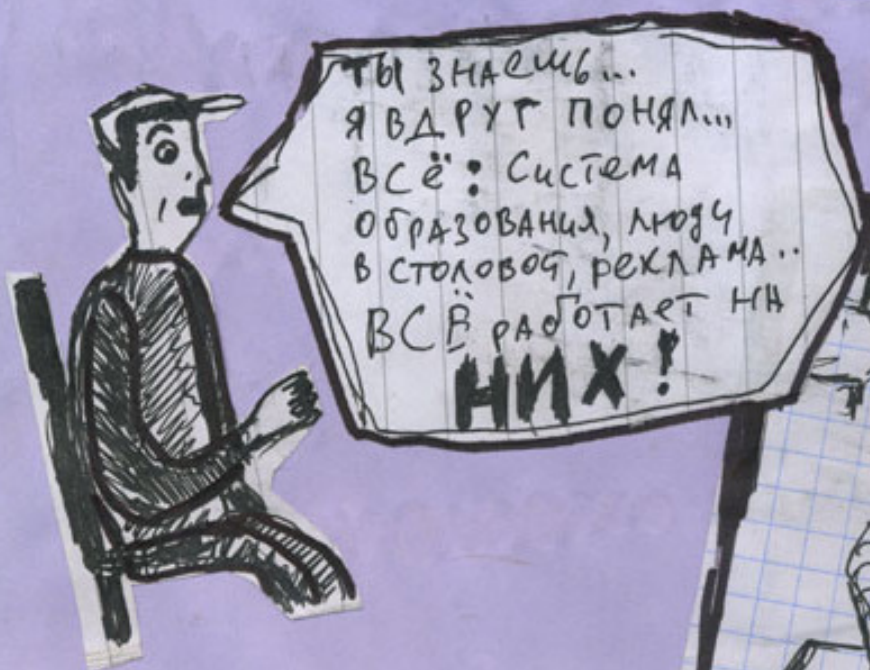 ТЫ ЗНАЕШЬ...
Я ВДРУГ ПОНЯЛ...
ВСЁ: СИСТЕМА
ОБРАЗОВАНИЯ, ЛЮДИ
В СТОЛОВОЙ, РЕКЛАМА..
ВСЁ РАБОТАЕТ НА
НИХ!